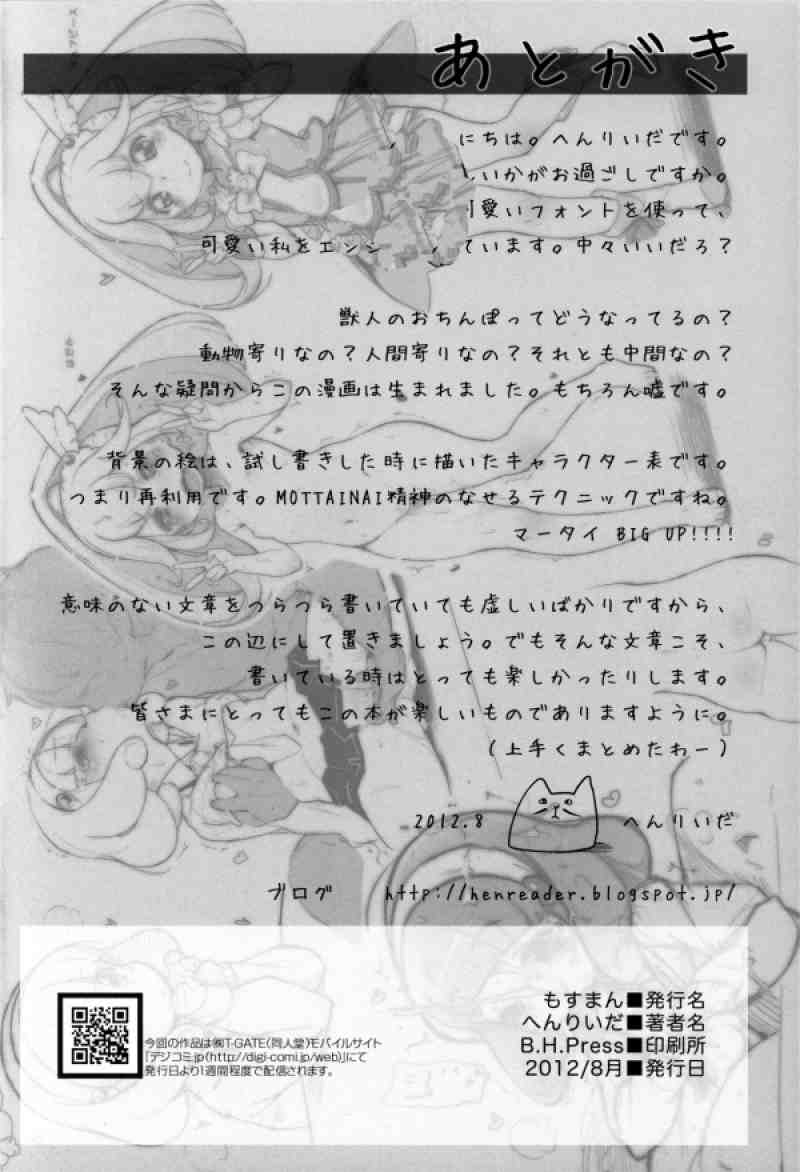 あとがき
にちは。へんりいだです。
いかがお過ごしですか。
愛いフォントを使って、
可愛い私をエンジ ています。中々いいだろ?
獣人のおちんぽってどうなってるの?
動物寄りなの?人間寄りなの?それとも中間なの?
そんな疑問からこの漫画は生まれました。もちろん嘘です。
背景の絵は、試し書きした時に描いたキャラクター表です。
つまり再利用です。MOTTAINAI精神のなせるテクニックですね。
マータイ BIG UP!!!!
意味のない文章をつらつら書いていても虚しいばかりですから、
この辺にして置きましょう。でもそんな文章こそ、
書いている時はとっても楽しかったりします。
皆さまにとってもこの本が楽しいものでありますように。
(上手くまとめたわー)
2012.8 へんりいだ
ブログ http://henreader.blogspot.jp/
今回の作品は㈱T-GATE(同人堂)モバイルサイト
「デジコミjp(http://digi-comi.jp/web)」にて
発行日より1週間程度で配信されます。
もすまん■発行名
へんりいだ■著者名
B.H.Press■印刷所
2012/8月■発行日